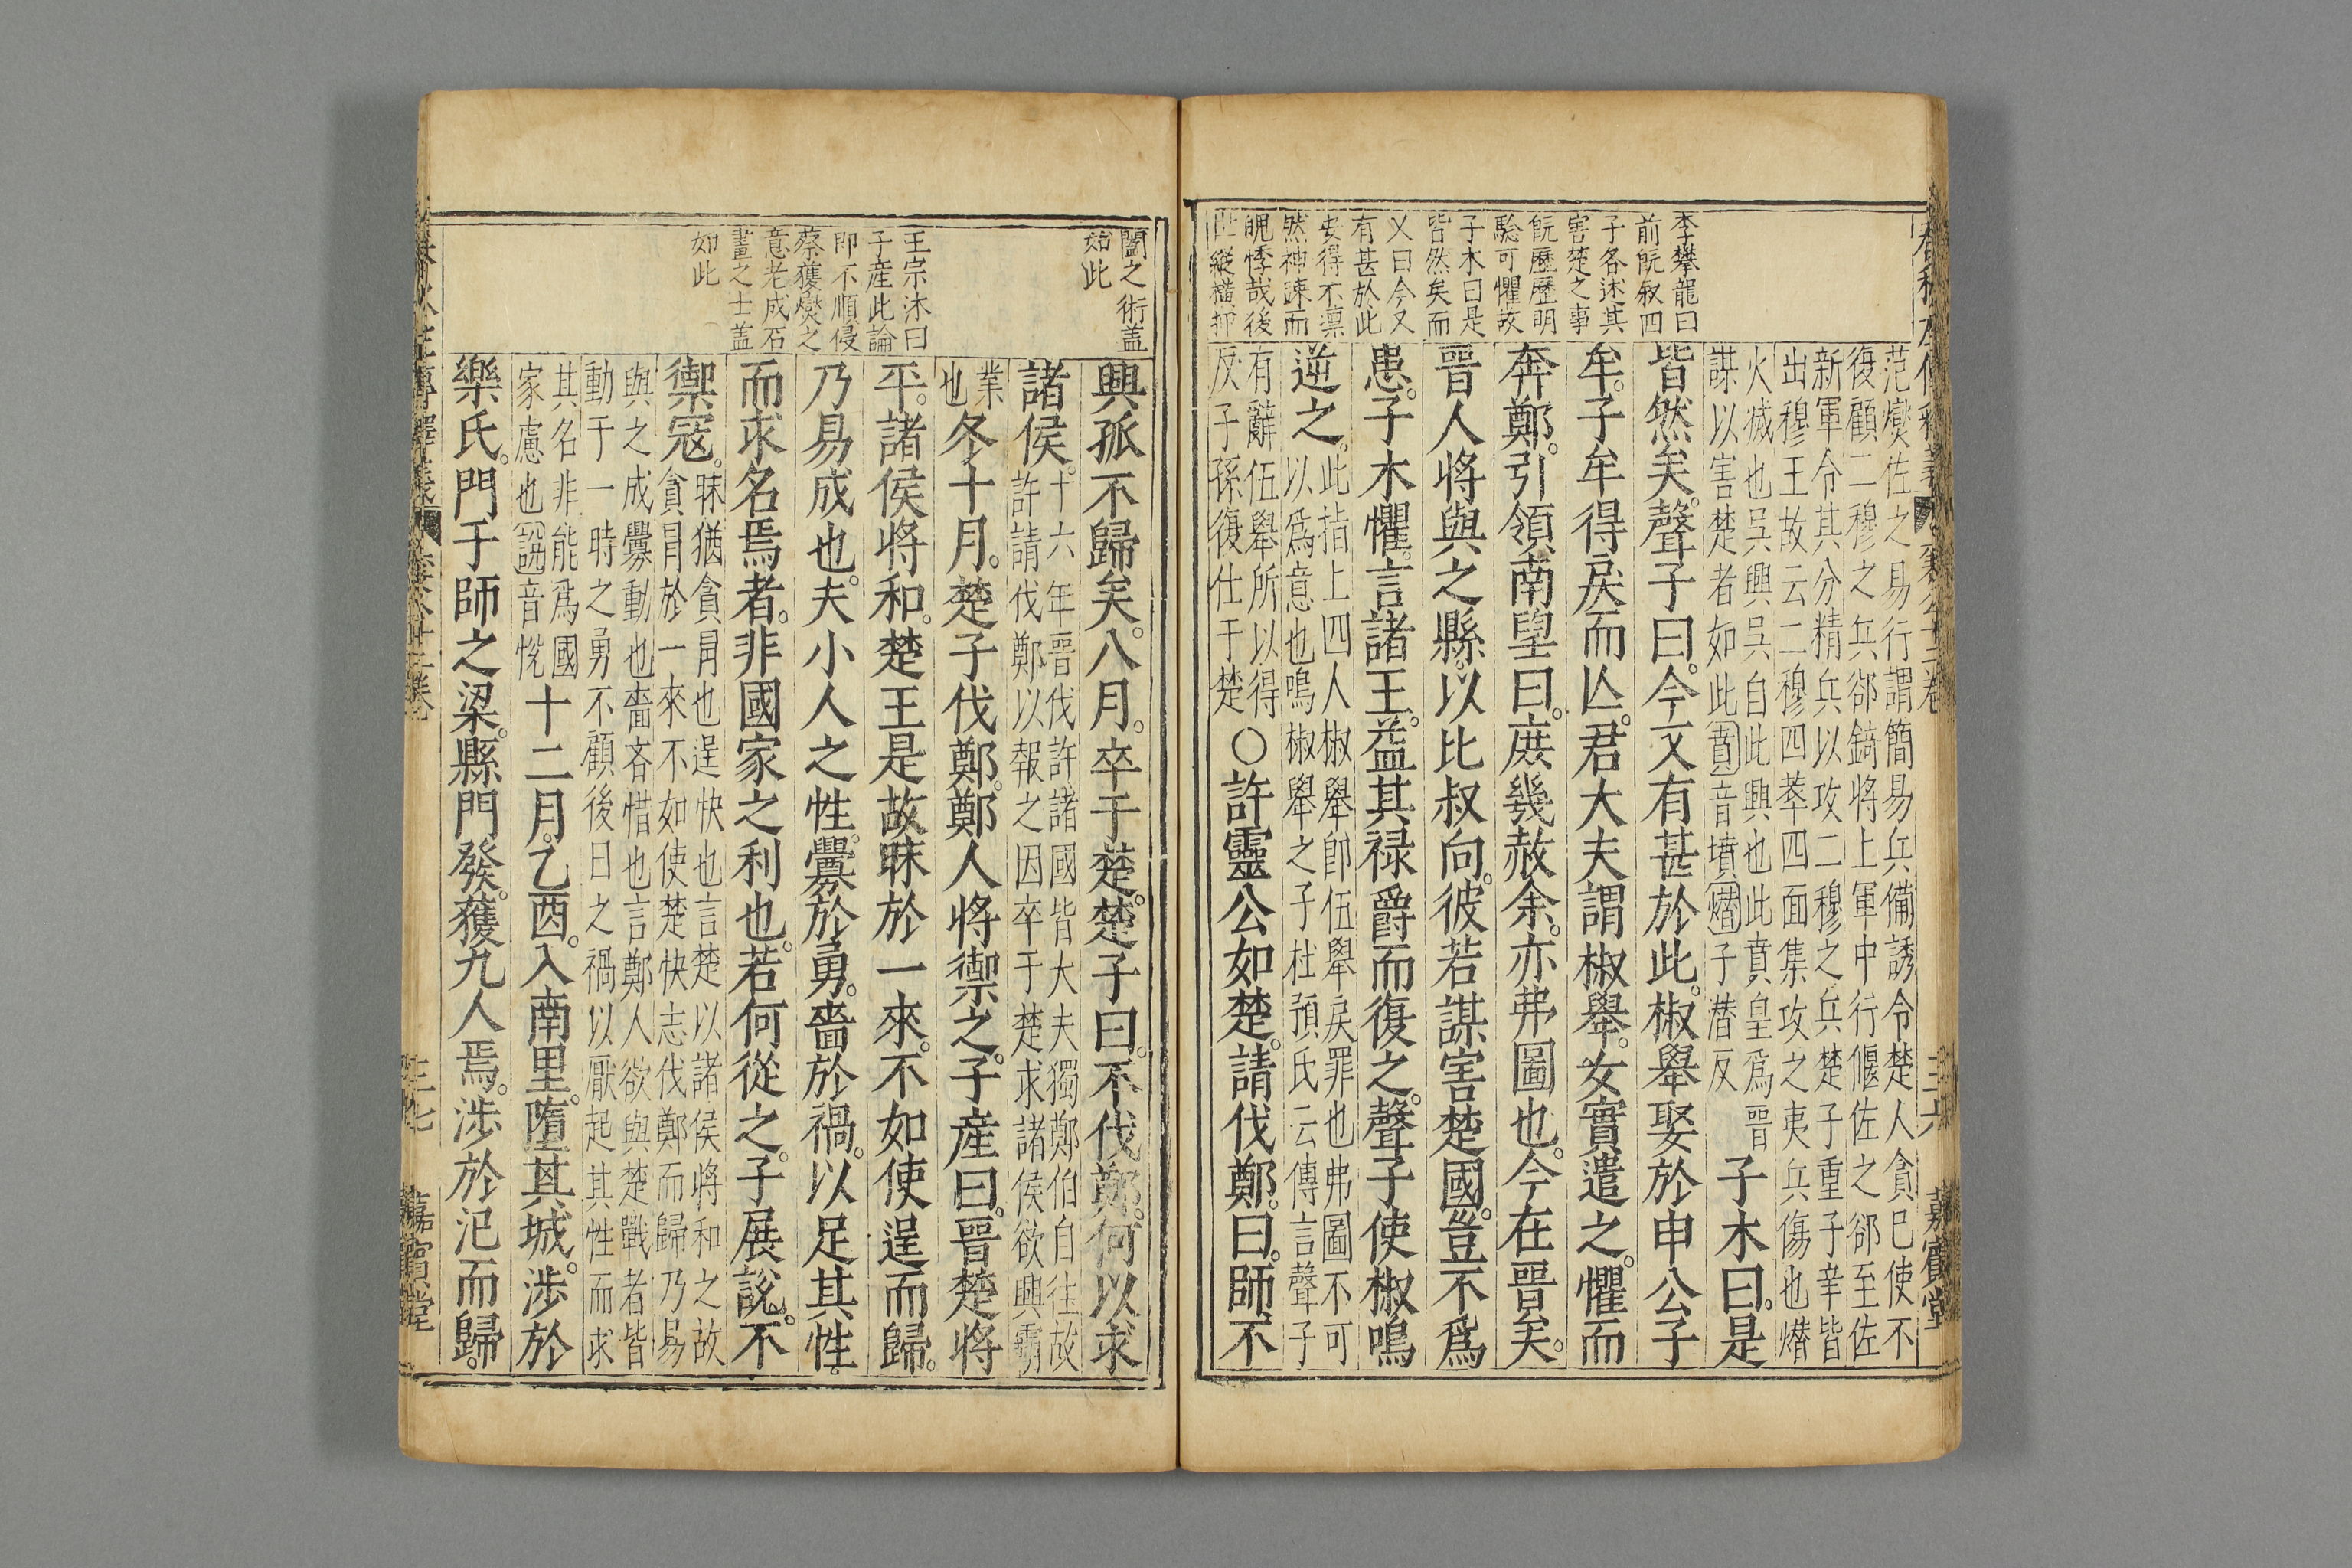 李攀龍曰
前旣叙四
子各述其
害楚之事
旣歷歷明
驗可懼故
子木曰是
皆然矣而
又曰今又
有甚於此
安得不凛
然神竦而
愧悸哉後
世縱横押
范燮佐之易行謂簡易兵備誘令楚人貪巳使不
復顧二穆之兵郤錡將上軍中行偃佐之郤至佐
新軍令其分精兵以攻二穆之兵楚子重子辛皆
出穆王故云二穆四萃四面集攻之夷兵傷也熸
火㓕也吳興吳自此興也此賁皇爲晉
謀以害楚者如此賁音墳熸子潛反
子木曰。是
皆然矣。聲子曰。今又有甚於此。椒舉娶於申公子
牟。子牟得戾而亾。君大夫謂椒舉。女實遣之。懼而
奔鄭。引領南望曰。庶幾赦余。亦弗圖也。今在晉矣。
晉人將與之縣。以比叔向。彼若謀害楚國。豈不爲
患。子木懼。言諸王。益其禄爵而復之。聲子使椒鳴
逆之。
此指上四人椒舉卽伍舉戾罪也弗圖不可
以爲意也鳴椒舉之子杜預氏云傳言聲子
有辭伍舉所以得
反子孫復仕于楚
○許靈公如楚。請伐鄭。曰。師不
嘉賓堂
闔之術盖
如此
王宗沐曰
子産此論
即不順侵
蔡獲燮之
意老成石
畫之士盖
如此
興孤不歸矣。八月。卒于楚。楚子曰。不伐鄭。何以求
諸侯。
十六年晉伐許諸國皆大夫獨鄭伯自往故
許請伐鄭以報之因卒于楚求諸侯欲興霸
業
也
冬十月。楚子伐鄭。鄭人將禦之。子産曰。晉楚將
平。諸侯將和。楚王是故昧於一來。不如使逞而歸。
乃易成也。夫小人之性。釁於勇。嗇於禍。以足其性
而求名焉者。非國家之利也。若何從之。子展說。不
禦寇。
昧猶貪冐也逞快也言楚以諸侯將和之故
貪冐於一來不如使楚快志伐鄭而歸乃易
與之成釁動也嗇吝惜也言鄭人欲與楚戰者皆
動于一時之勇不顧後日之禍以厭起其性而求
其名非能爲國
家慮也說音悅
十二月。乙酉。入南里。墮其城。涉於
樂氏。門于師之梁。縣門發。獲九人焉。涉於汜而歸。
三七
嘉賓堂